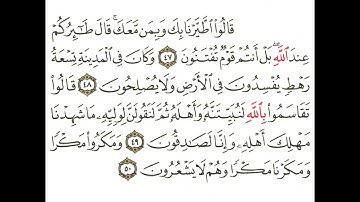 قَالُوا۟ ٱطَّيَّرْنَا بِكَ وَبِمَن مَّعَكَ ۚ قَالَ طَـٰٓئِرُكُمْ
عِندَ ٱللَّهِ ۖ بَلْ أَنتُمْ قَوْمٌ تُفْتَنُونَ ٤٧ وَكَانَ فِى ٱلْمَدِينَةِ تِسْعَةُ
رَهْطٍ يُفْسِدُونَ فِى ٱلْأَرْضِ وَلَا يُصْلِحُونَ ٤٨ قَالُوا۟
تَقَاسَمُوا۟ بِٱللَّهِ لَنُبَيِّتَنَّهُۥ وَأَهْلَهُۥ ثُمَّ لَنَقُولَنَّ لِوَلِيِّهِۦ مَا شَهِدْنَا
مَهْلِكَ أَهْلِهِۦ وَإِنَّا لَصَـٰدِقُونَ ٤٩ وَمَكَرُوا۟ مَكْرًا
وَمَكَرْنَا مَكْرًا وَهُمْ لَا يَشْعُرُونَ ٥٠